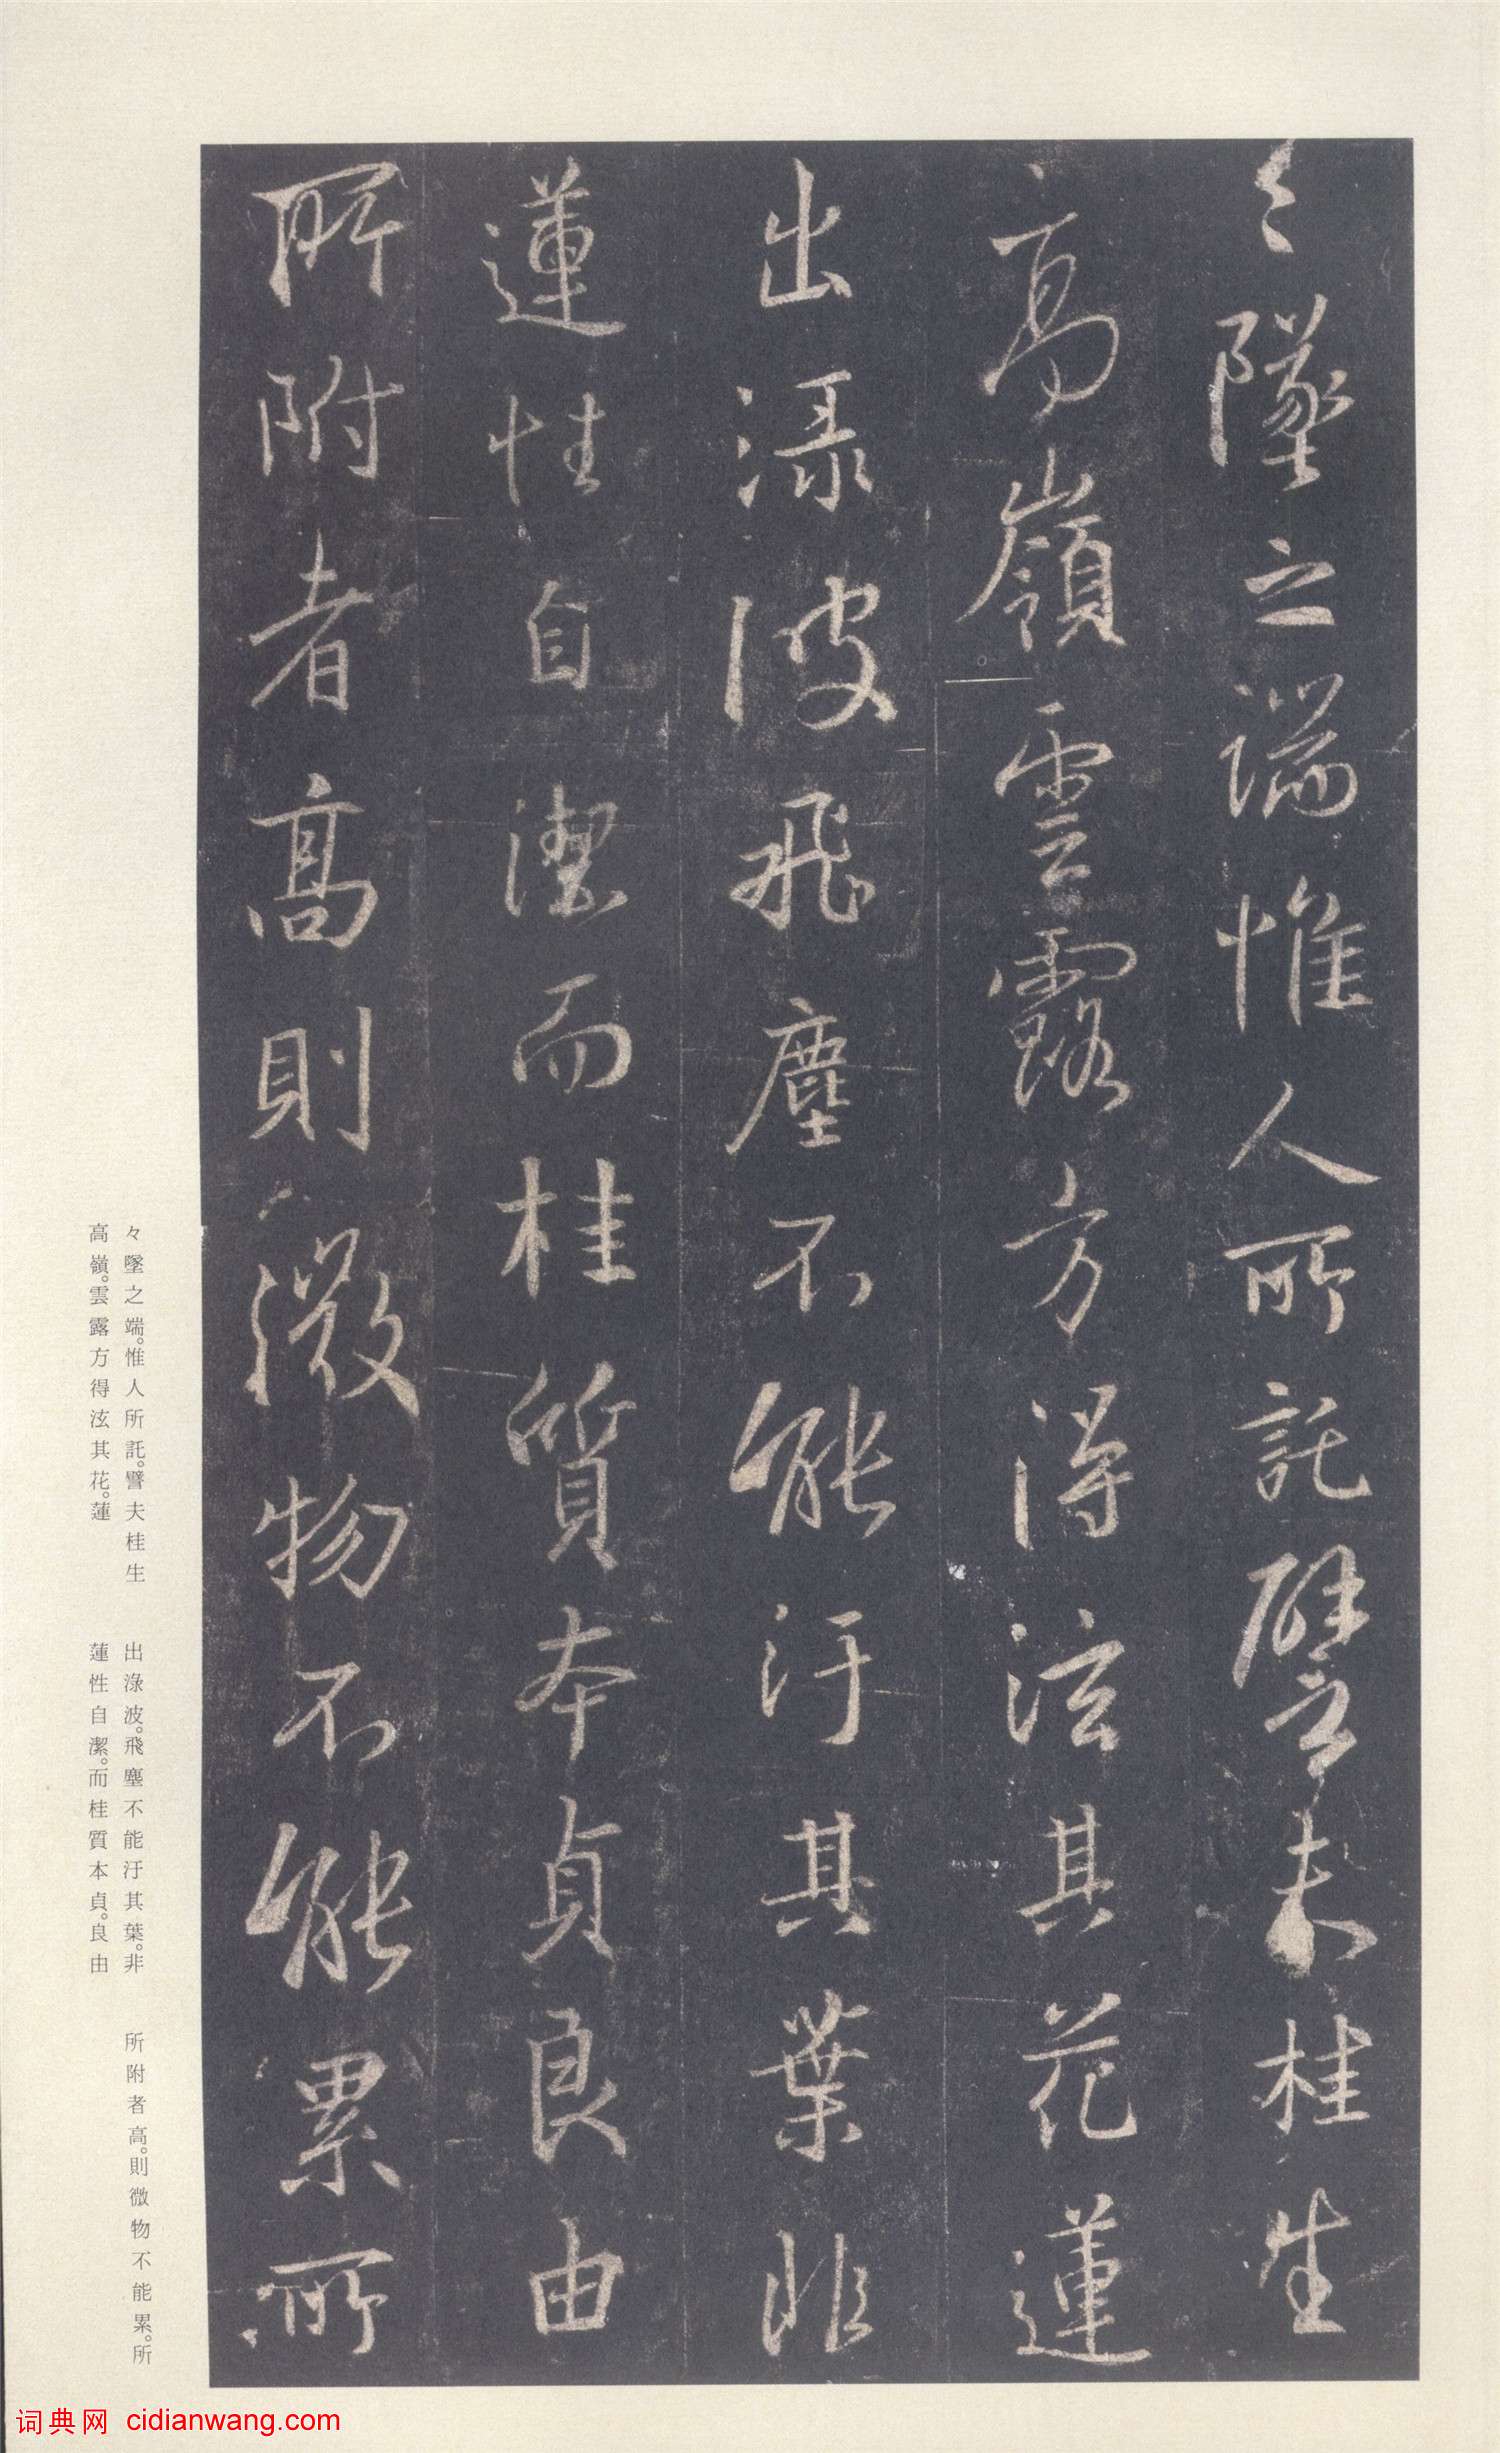 々墜之端惟人所託譬夫桂生
高嶺雲露方得泫其花蓮
出淥波飛塵不能汙其葉非
蓮性自潔而桂質本貞良由
所附者高則微物不能累所
々墜之端。惟人所託。譬夫桂生
高嶺。雲露方得泫其花。蓮
出淥波。飛塵不能汙其葉。非
蓮性自潔。而桂質本貞。良由
所附者高。則微物不能累。所
词典网 cidianwang.com